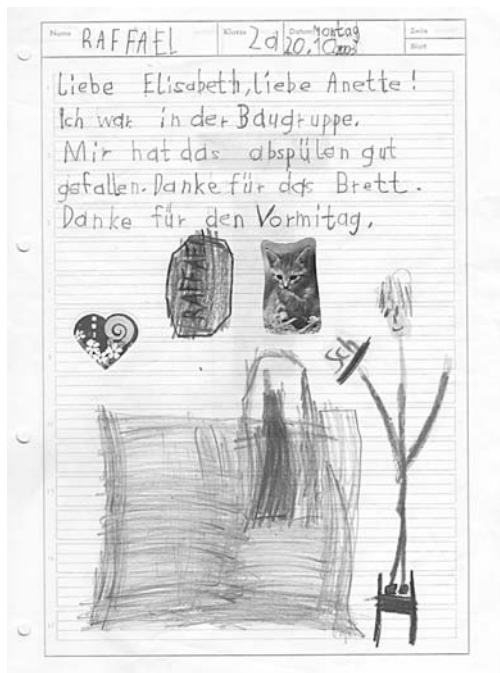 Name RAFFAEL Klasse 2a Datum Montag
20.10.2003 Zeile
Blatt
Liebe Elisabeth, liebe Anette!
Ich war in der Baugruppe.
Mir hat das abspülen gut
gefallen. Danke für das Brett.
Danke für den Vormitag.
RAFFAEL
Sch